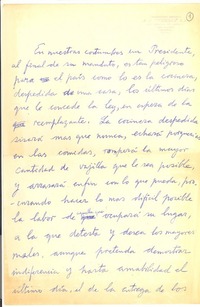 1
En nuestras costumbres un Presidente,
al final de su mandato, es tan peligroso
para el país como lo es la cocinera,
despedida de una casa, los últimos días
que le concede la ley, en espera de la
reemplazante. La cocinera despedida
sisará mas que nunca, echará
en las comidas, romperá la mayor
cantidad de vajilla que le sea posible,
y arrasará enfin con lo que pueda, pro-
curando hacer lo mas dificil posible
la labor de quien ocupará su lugar,
a la que detesta y desea los mayores
males, aunque pretenda demostrar
indiferencia y hasta amabilidad el
último día, el de la entrega de los